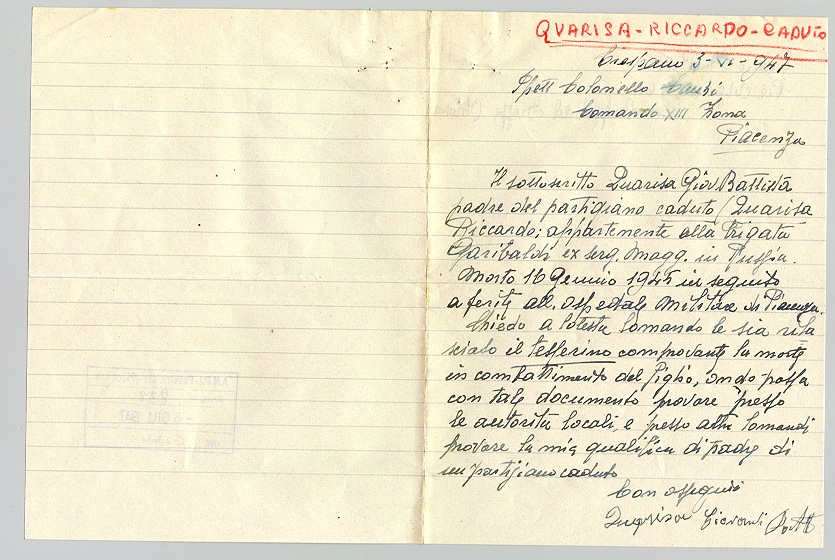 QUARISA - RICCARDO - CADUTO
Crespano 3-VI-947
Spett Colonello
Comando XIII Zona
Piacenza
Il sottoscritto Quarisa Giov Battista
padre del partigiano caduto Quarisa
Riccardo; appartenente alla Brigata
Garibaldi ex serg. Magg. in Russia.
Morto 16 Gennio 1945 in seguito
a ferite all. Ospedale Militare di Piacenza.
Chiedo a Cotesto Comando le sia rila
sciato il tesserino comprovante la morte
in combattimento del figlio, ondo possa
con tale documento provare presso
le autorità locali e presso altri Comandi
provare la mia qualifica di padre di
un partigiano caduto
Con ossequi
Quarisa Giovanni Batt